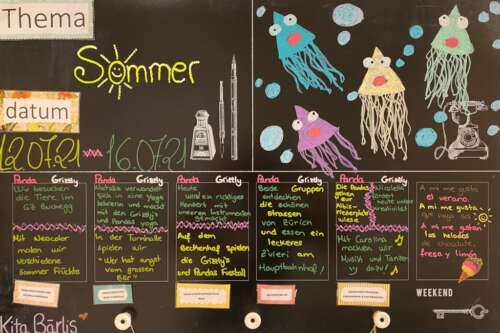 Thema
Sommer
datum
12.07.21 16.07.21
Panda Grizzly
Wir besuchen
die Tiere im
GZ Buchegg
Mit Neocolor
malen wir
verschiedene
Sommer Früchte
Panda Grizzly
Natalia verwandelt
sich in eine Yoga
lehrerin und macht
mit den Grizzly's
und Pandas Yoga.
In der Turnhalle
spielen wir
"Wer hat angst
vom grossen
Bär"
Panda Grizzly
Heute
wird ein richtiges
Konzert mit
unseren Instrumenten
gemacht
Auf dem
Bechenhof spielen
die Grizzly's
und Pandas Fussball
Panda Grizzly
Beide Gruppen
entdecken
die schönen
strassen
von Zürich
und essen ein
leckeres
Zvieri am
Hauptbahnhof!
Panda Grizzly
Die Pandas
gehen
zur
platz
Mit Carolina
machen wir
Musik und Tanzen
dazu!
A mi me gusta
el verano.
me gusta
A mi me gustan
los helados
de chocolate,
fresa y limón
WEEKEND
Kita Bärlis